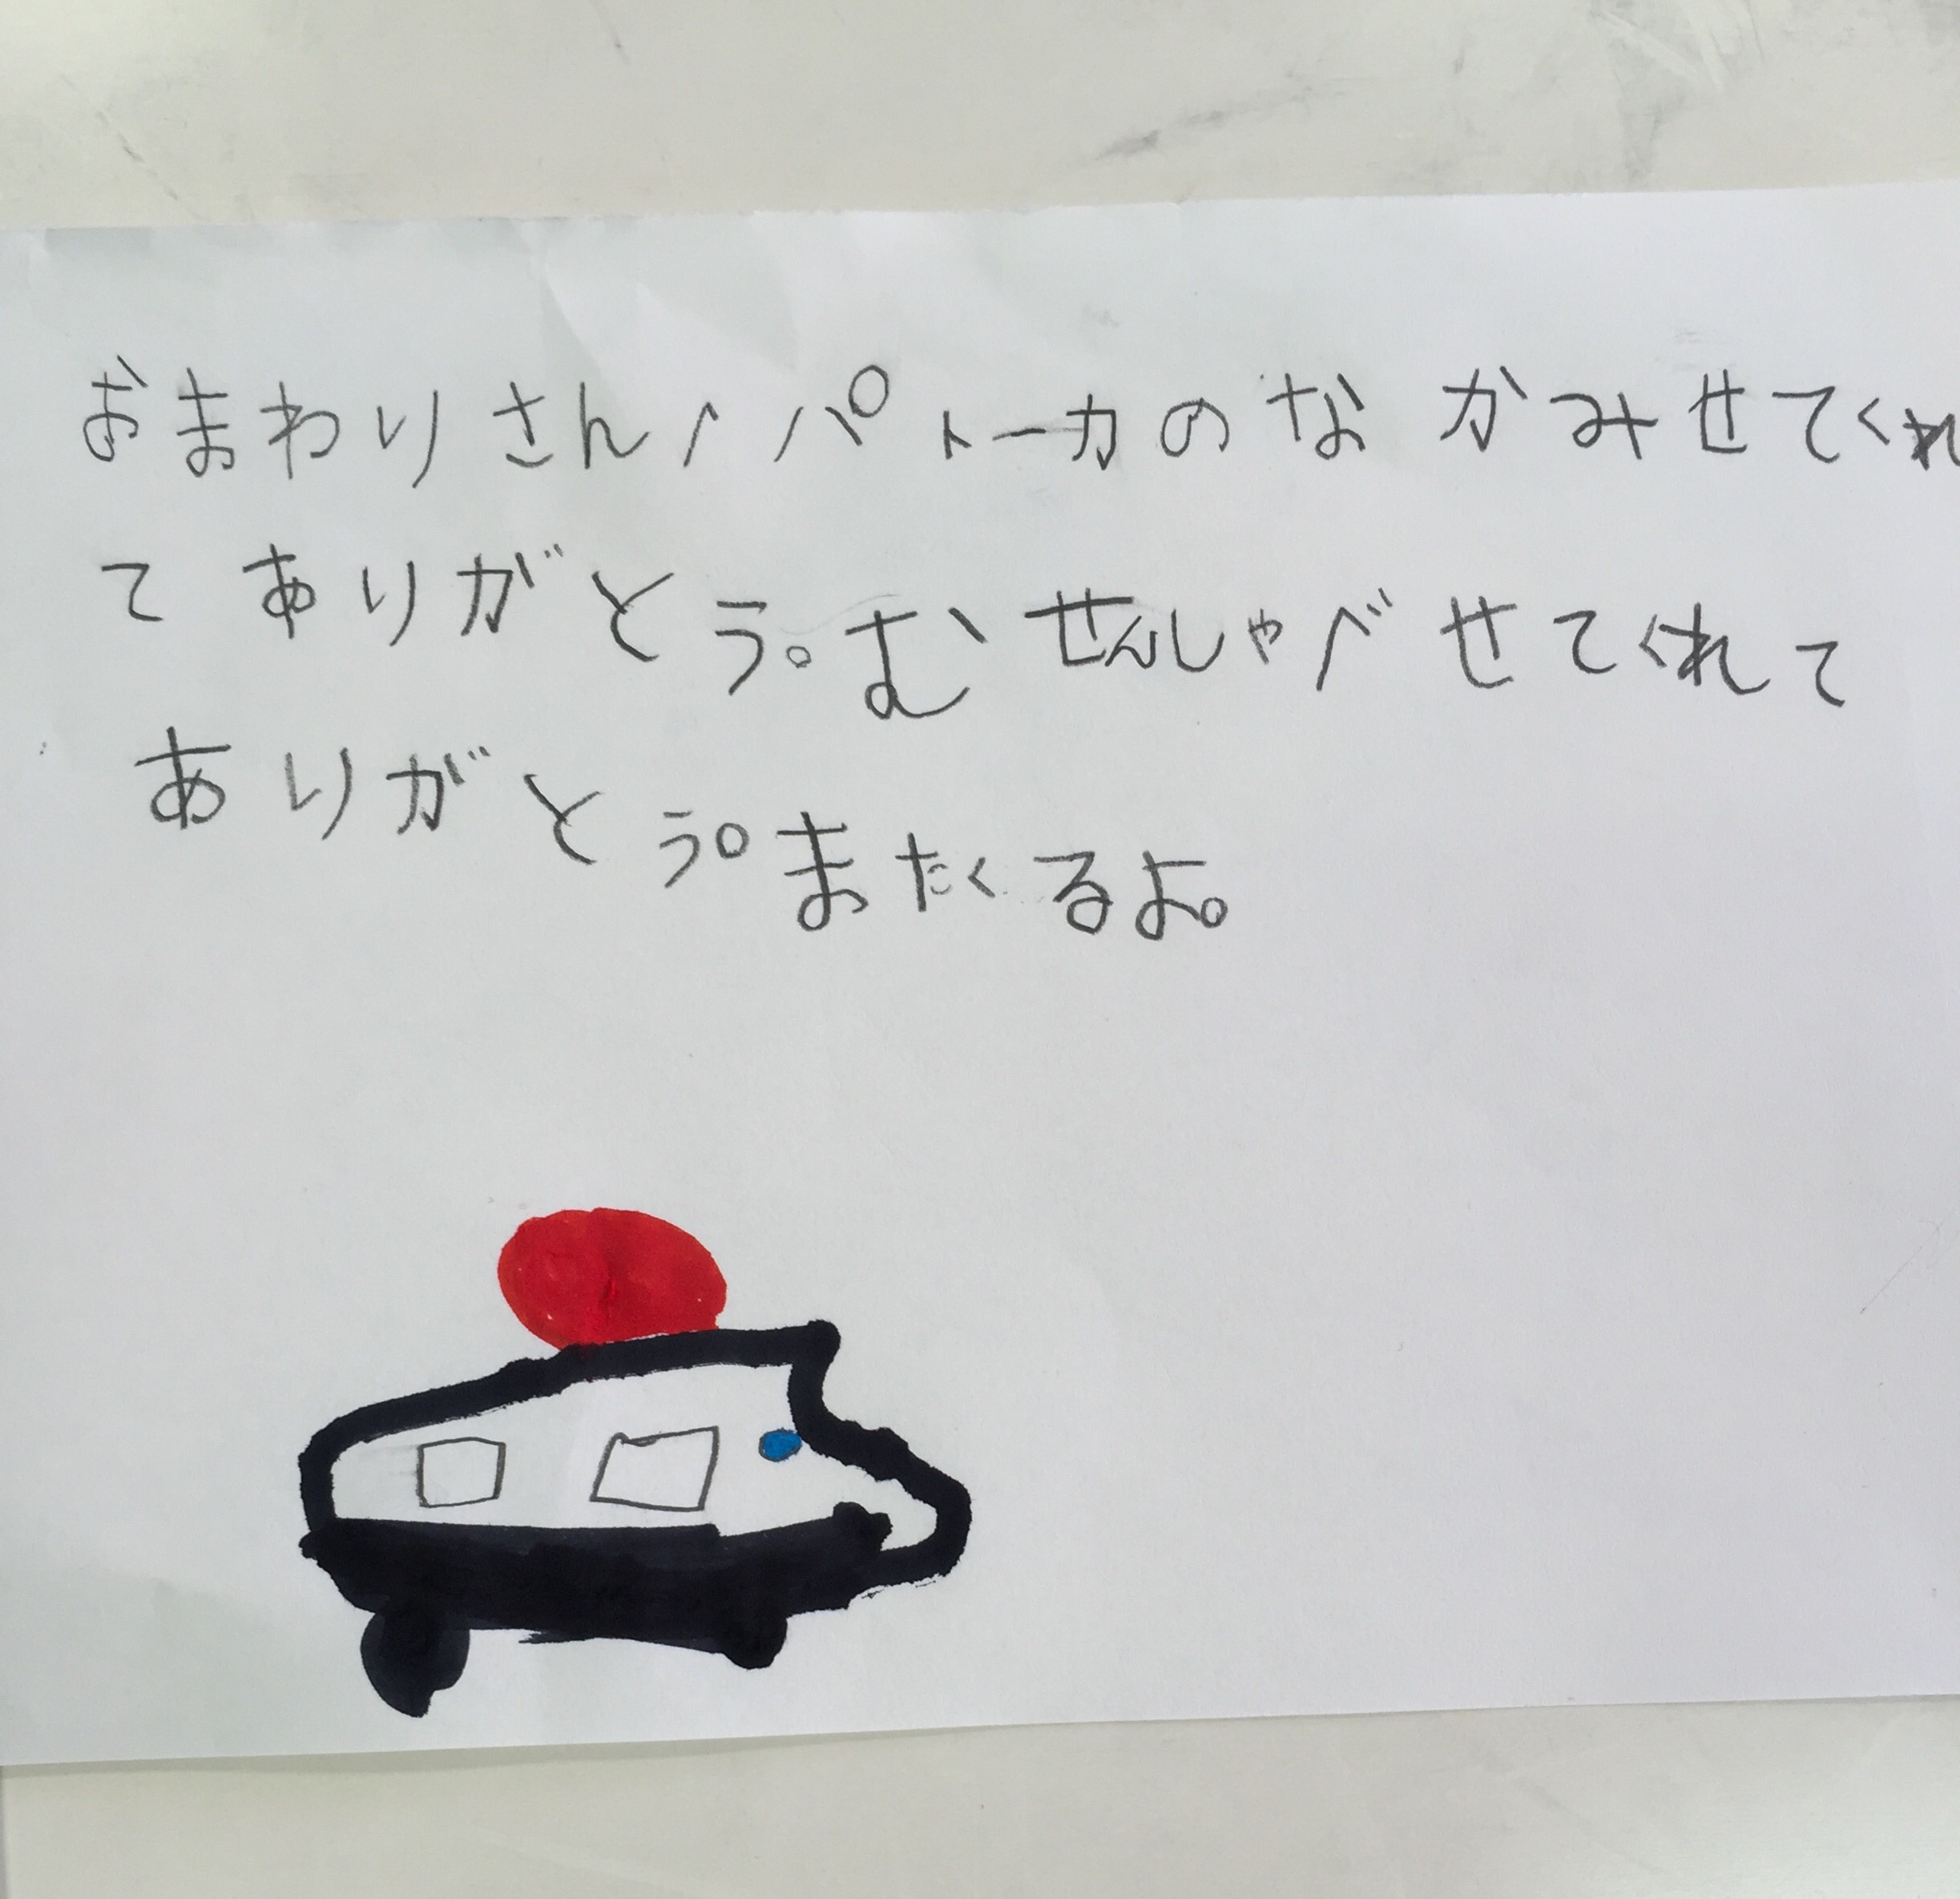 おまわりさんへパトーカのなかみせてくれ
てありがとう。むせんしゃべせてくれて
ありがとう。またくるよ。